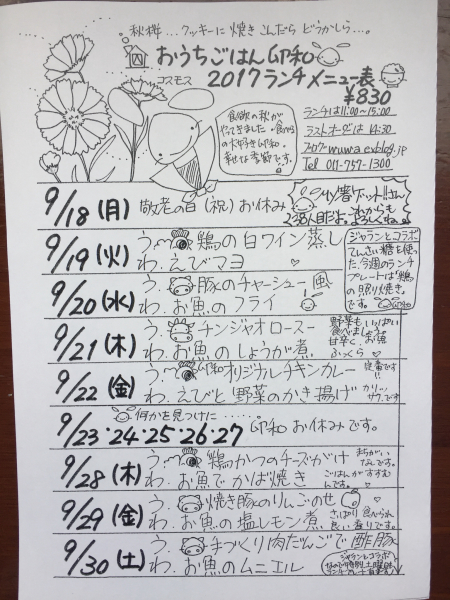 秋桜…クッキーに焼きこんだらどうかしら…。
おうちごはん 卯和
コスモス
2017ランチメニュー表
¥830
食欲の秋が
やってきました。食べる
の大好き卯和。
幸せな季節です。
ランチは11:00~15:00
ラストオーダーは14:30
ブログ uuwa.exblog.jp
Tel 011-757-1300
9/18(月) 敬老の日(祝)お休み
My箸ゲットはん
238人目だよ。これからも
よろしくね。
9/19(火) う.鶏の白ワイン蒸し
わ.えびマヨ
ジャランとコラボ
てんさい糖を使っ
た。今週のランチ
プレートは「鶏
の照り焼き」
です。卯和
9/20(水) う.豚のチャーシュー風
わ.お魚のフライ
9/21(木) う.チンジャオロースー
わ.お魚のしょうが煮
野菜もいっぱい
食べましょう。
甘辛く、お魚
ふっくら
9/22(金) う.卯和オリジナルチキンカレー
わ.えびと野菜のかき揚げ
定番です!!
カリッ
サクッです
何かを見つけに……。
9/23・24・25・26・27 卯和お休みです。
9/28(木) う.鶏かつのチーズがけ
わ.お魚でかば焼き
まちがい
なしです。
ごはんがすすむ
んです。
9/29(金) う.焼き豚のりんごのせ
わ.お魚の塩レモン煮
さっぱり食べられ
良い香りです。
9/30(土) う.手づくり肉だんごで酢豚
わ.お魚のムニエル
ジャランとコラボ